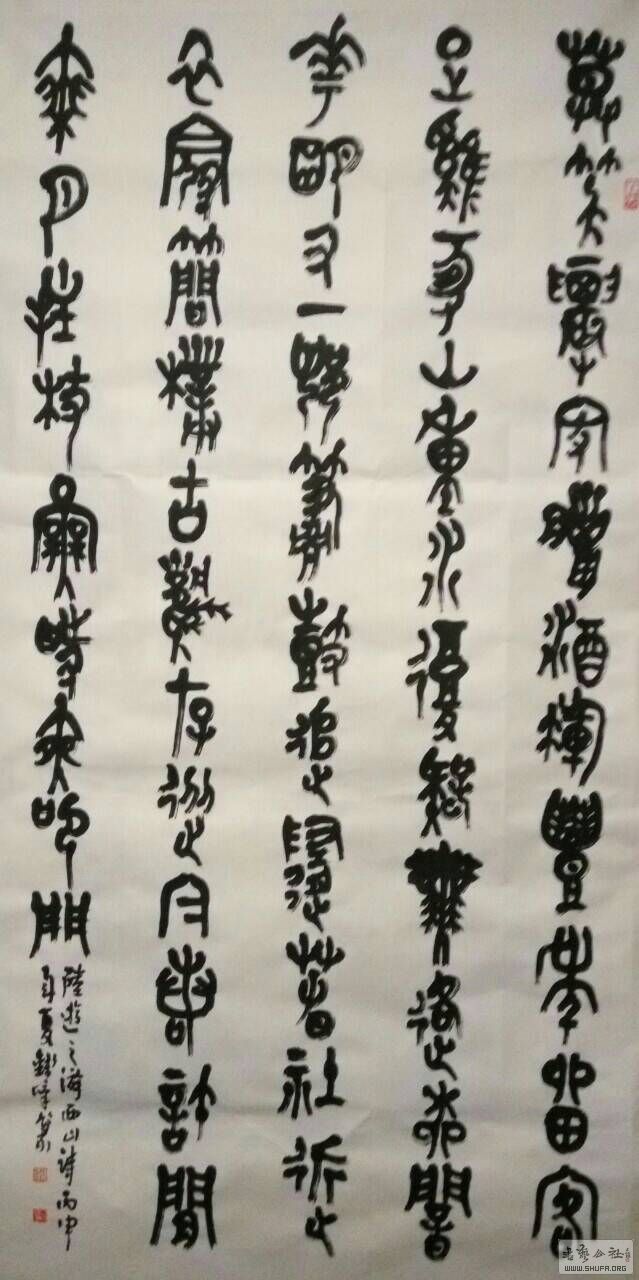 莫笑農家臘酒渾豐年留客
足雞豚山重水復疑無路柳暗
花明又一村簫鼓追隨春社近
衣冠簡樸古風存從今若許閒
乘月拄杖無時夜叩門
陸遊之游西山詩丙申
年夏篆
書藝公社
WWW.SHUFA.ORG